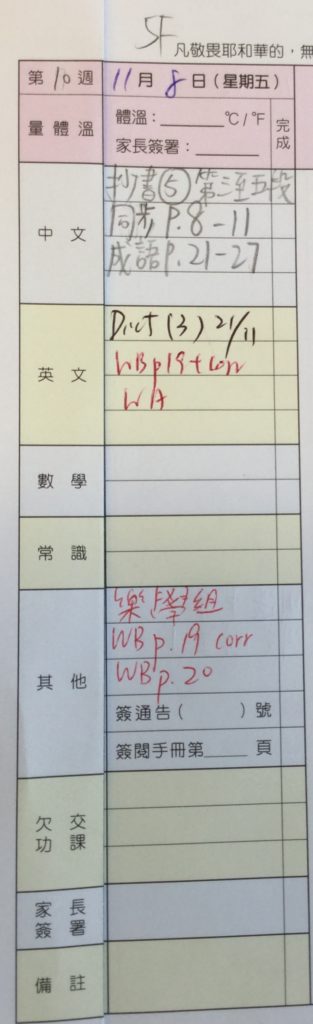 5F
凡敬畏耶和華的，無
第10週 11月8日(星期五)
量體溫 體溫：______°C/°F 完成
家長簽署：______
中文 抄書⑤第三至五段
同步P.8-11
成語P.21-27
英文 Dict (3) 21/11
WBp19+corr
WA
數學
常識
其他 樂學組
WB p.19 corr
WB p.20
簽通告( )號
簽閱手冊第____頁
欠交功課
家長簽署
備註